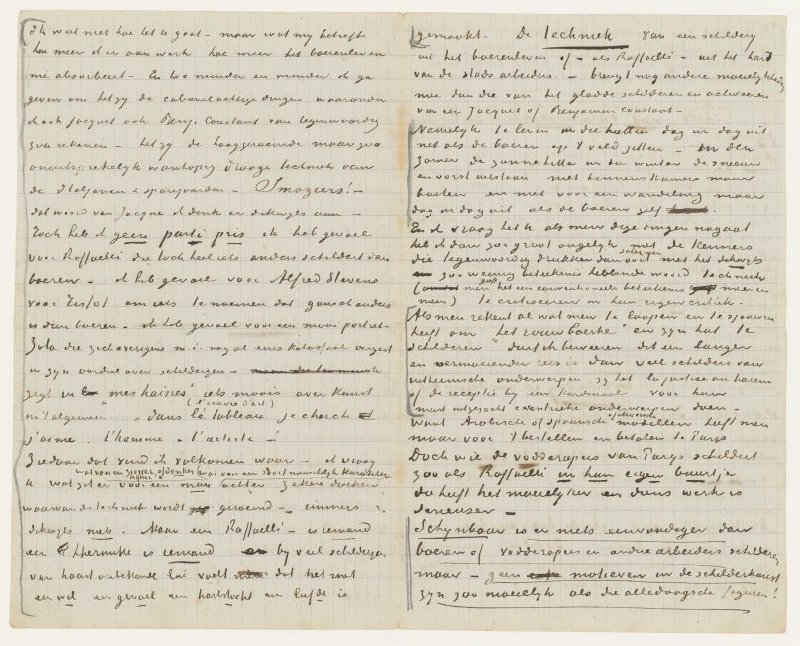 Ik weet niet hoe het U gaat – maar wat my betreft
hoe meer ik er aan werk hoe meer het boerenleven
me absorbeert – En hoe minder en minder ik ga
geven om hetzy de cabanelachtige dingen waaronder
ik ook Jacquet ook Benj. Constant van tegenwoordig
zou rekenen – hetzy de hooggeroemde maar zoo
onuitsprekelijk wanhopig drooge techniek van
de Italjanen & spanjaarden – Imagiers! –
dat woord van Jacque ik denk er dikwyls aan –
Toch heb ik geen parti pris ik heb gevoel
voor Raffaelli die toch heel iets anders schildert dan
boeren – ik heb gevoel voor Alfred Stevens
voor Tissot om iets te noemen dat gansch anders
is dan boeren – ik heb gevoel voor een mooi portret –
Zola die zich overigens m.i. nog al eens kolossaal vergist
in zyn oordeel over schilderyen –
zegt in "mes haines" iets moois over kunst
in 't algemeen " dans le tableau (l'oeuvre d'art) je cherche
j'aime l'homme – l'artiste –
Ziedaar dat vind ik volkomen waar – ik vraag
U wat zit er voor een man wat voor een ziener, of denker, kyker, wat voor een soort menschelijk karakter achter zekere doeken
waarvan de techniek wordt geroemd – immers
dikwyls niets. Maar een Raffaelli – is iemand
een Lhermitte is iemand en by veel schilderyen
van haast onbekende lui voelt men dat het met
een wil een gevoel een hartstocht een liefde is
gemaakt. De techniek van een schildery
uit het boerenleven of – als Raffaelli – uit het hart
van de stads arbeiders – brengt nog andere moeielykheden
mee dan die van het gladde schilderen en actie
van een Jacquet of Benjamin Constant –
Namelyk te leven in die hutten dag in dag uit
net als de boeren op 't veld zitten – in den
zomer de zonnehitte in den winter de sneeuw
en vorst uitstaan niet binnenskamers maar
buiten en niet voor een wandeling maar
dag in dag uit als de boeren zelf.
En ik vraag het U als men deze dingen nagaat
heb ik dan zoo groot ongelyk met de kenners
die tegenwoordig drukker dan ooit schermen met het dikwyls
zoo weinig beteekenis hebbende woord techniek
(men geeft het een conventioneele beteekenis meer en
meer) te critiseeren in hun eigen critiek.
Als men rekent al wat men te loopen en te sjouwen
heeft om "het rouwboerke" en zyn hut te
schilderen" durf ik beweren dit een langer
en vermoeiender reis is dan veel schilders van
uitheemsche onderwerpen zy het la justice au harem
of de receptie by een kardinaal voor hun
meest uitgezocht exentrieke onderwerpen doen –
want Arabische of spaansche of moorsche modellen heeft men
maar voor 't bestellen en betalen te Parys
Doch wie de vodderapers van Parys schildert
zooals Raffaelli in hun eigen buurtje
die heeft het moeielyker en diens werk is
serieuser –
Schynbaar is er niets eenvoudiger dan
boeren of vodderapers en andere arbeiders schilderen
maar – geen motieven in de schilderkunst
zyn zoo moeielyk als die alledaagsche figuren!